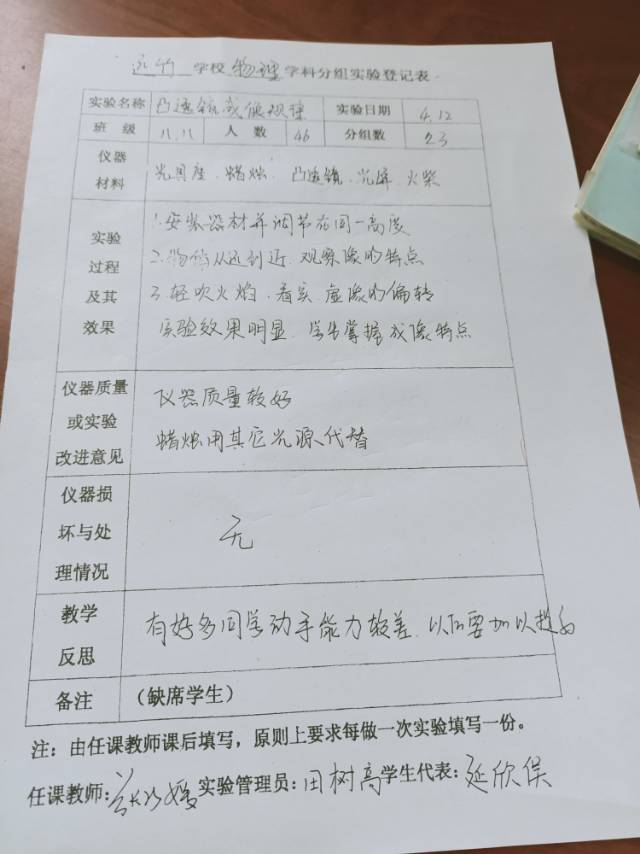 延竹 学校 物理 学科分组实验登记表
实验名称 凸透镜成像规律 实验日期 4.12
班 级 八.八 人 数 46 分组数 23
仪器材料 光具座 . 蜡烛 . 凸透镜 . 光屏 . 火柴
实验过程及其效果
1.安装器材并调节在同一高度
2.物体从远到近.观察像的特点
3.轻吹火焰.看实.虚像的偏转
实验效果明显.学生掌握成像特点
仪器质量或实验改进意见
仪器质量较好
蜡烛用其它光源代替
仪器损坏与处理情况 无
教学反思 有好多同学动手能力较差.以后要加以提高
备注 (缺席学生)
注：由任课教师课后填写，原则上要求每做一次实验填写一份。
任课教师: 实验管理员: 田树高 学生代表: 延欣俣